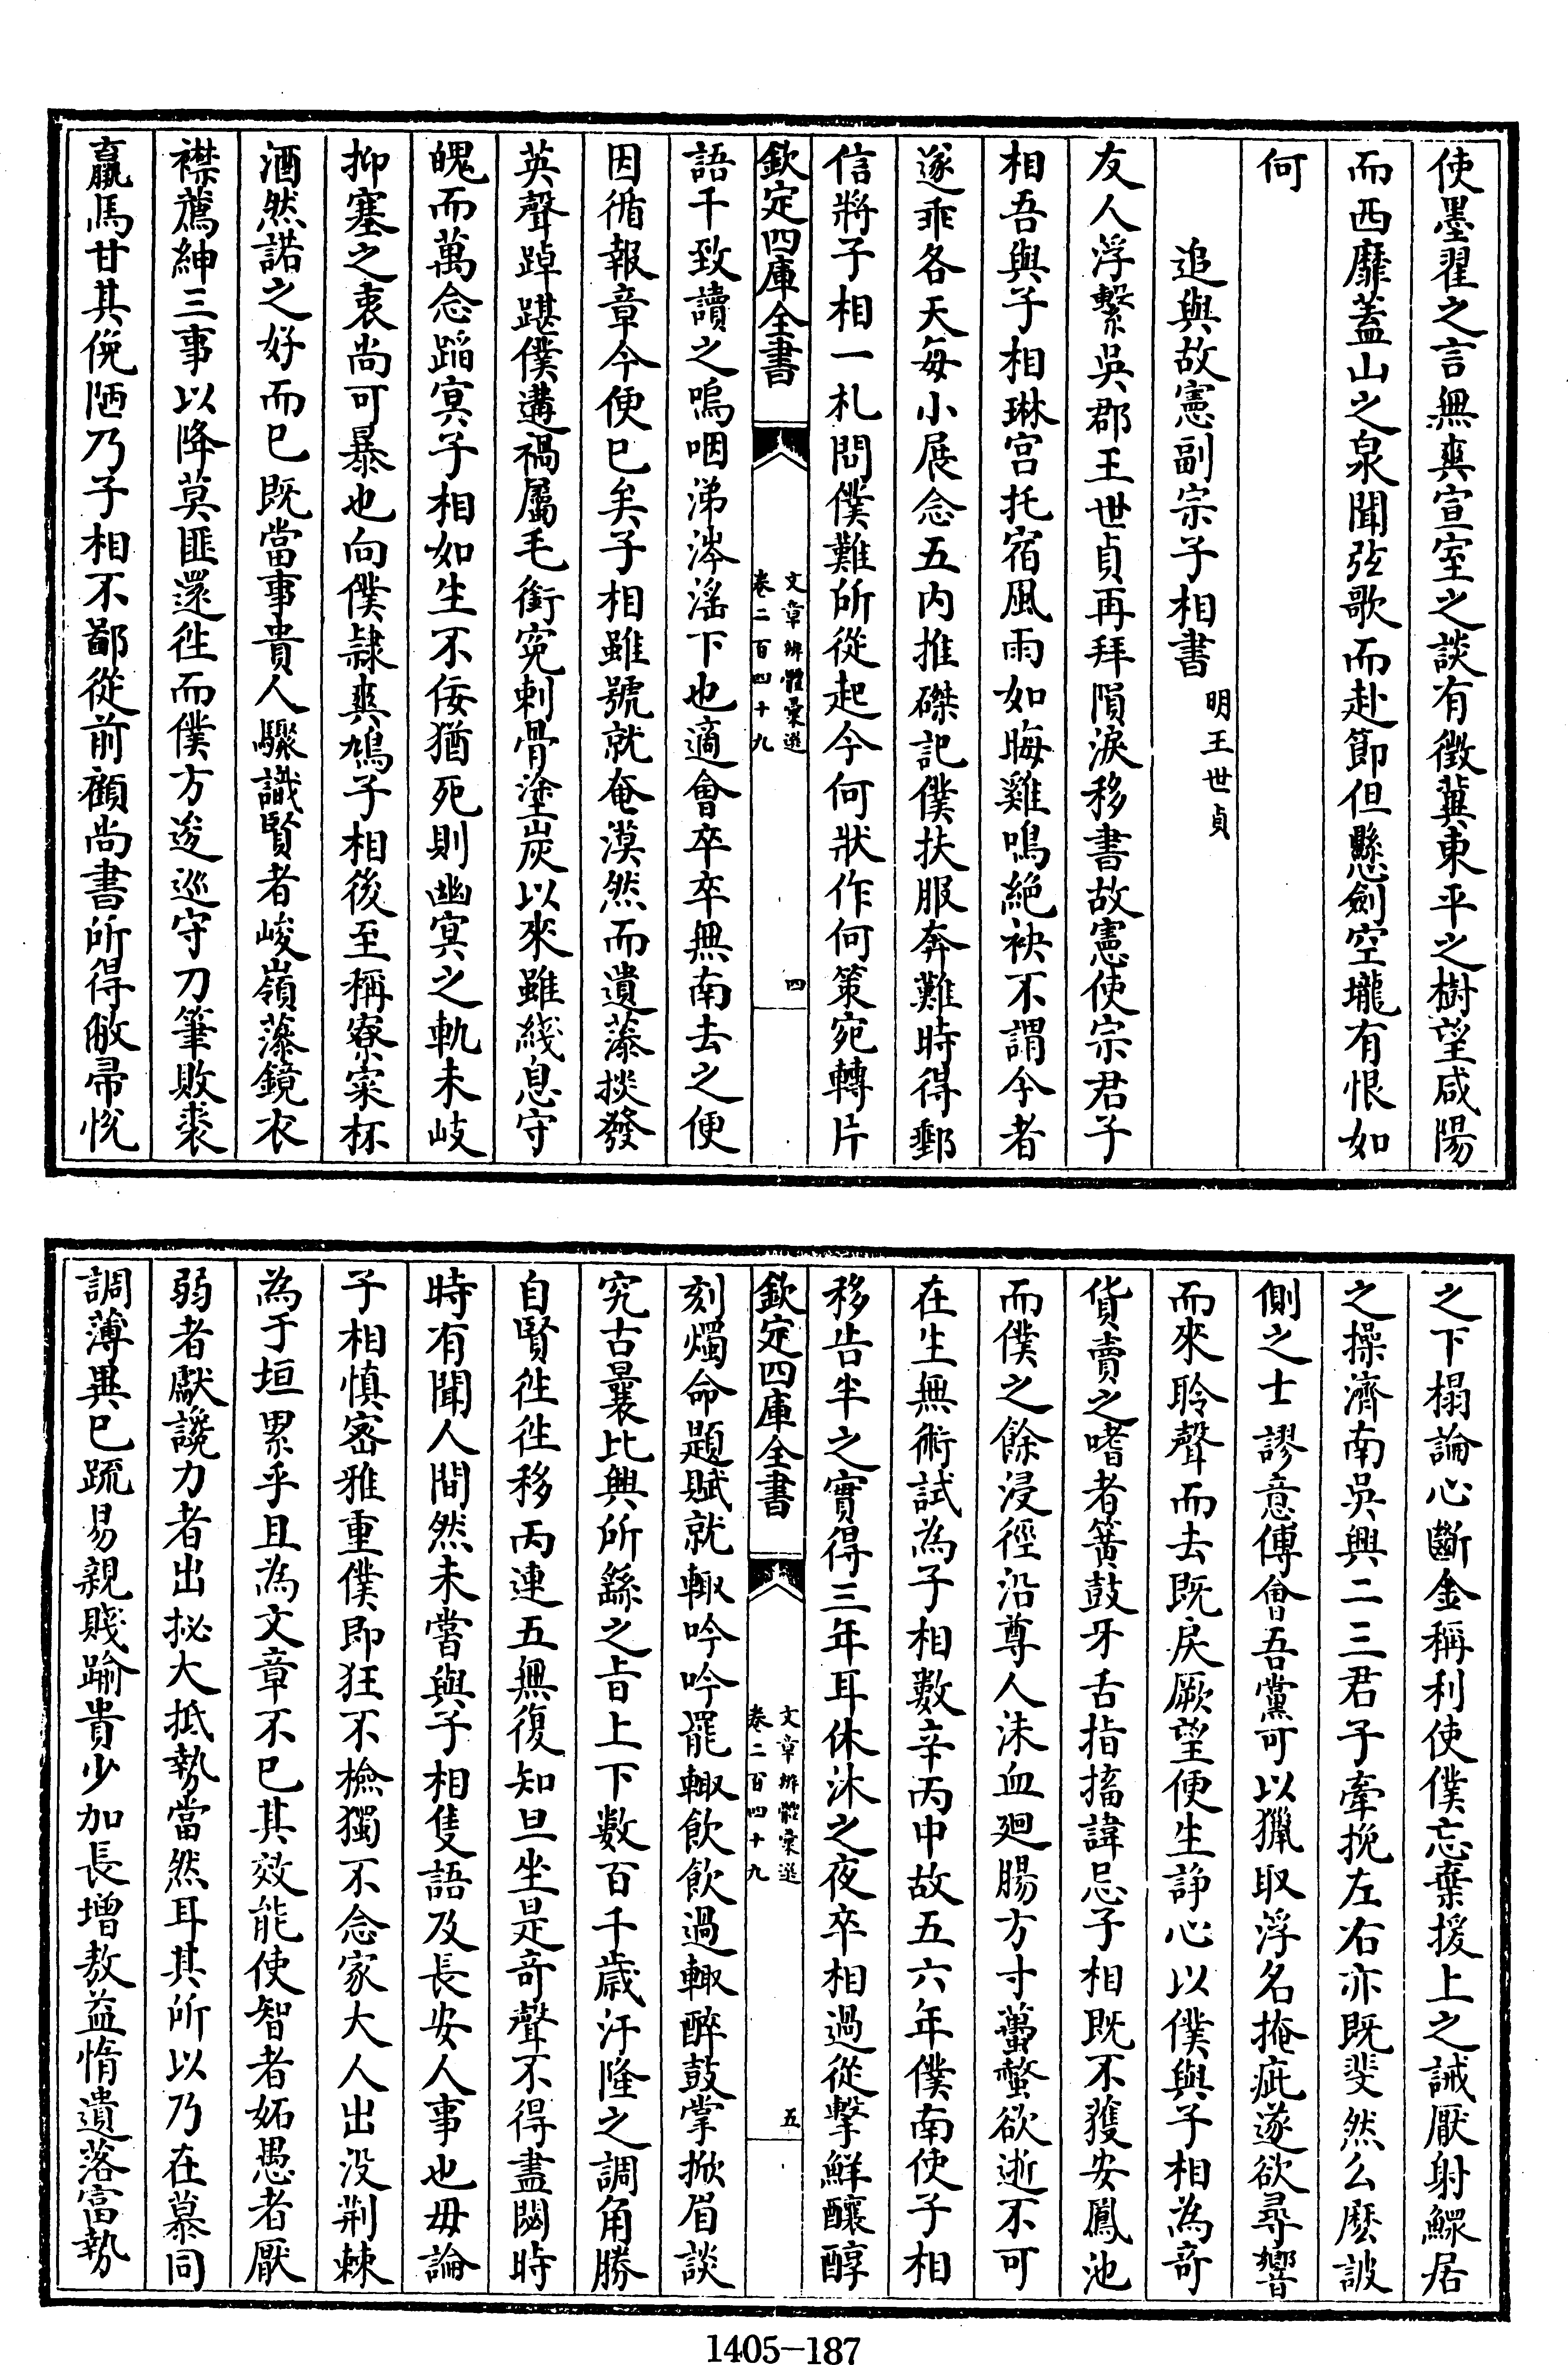 使墨翟之言無爽宣室之談有徵冀東平之樹望咸陽
而西靡蓋山之泉聞弦歌而赴節但懸劍空壠有恨如
何
追與故憲副宗子相書
明王世貞
友人浮繫吳郡王世貞再拜隕淚移書故憲使宗君子
相吾與子相琳宫托宿風雨如晦雞鳴絶袂不謂今者
遂乖各天每小展念五内推磔記僕扶服奔難時得郵
信將子相一札問僕難所從起今何狀作何策宛轉片
欽定四庫全書
文章辨體彙選
卷二百四十九
四
語千致讀之嗚咽涕涔滛下也適會卒卒無南去之便
因循報章今便已矣子相雖號就奄漠然而遺藻掞發
英聲踔踸僕遘禍屬毛銜寃刺骨塗炭以來雖綫息守
魄而萬念蹈冥子相如生不佞猶死則幽冥之軌未岐
抑塞之衷尚可暴也向僕隷爽鳩子相後至稱寮寀杯
酒然諾之好而已既當事貴人驟識賢者峻嶺藻鏡衣
襟薦紳三事以降莫匪還徃而僕方逡巡守刀筆敗裘
羸馬甘其侻陋乃子相不鄙從前顧尚書所得敝帚恱
之下榻論心斷金稱利使僕忘棄援上之誡厭射鰥居
之操濟南吳興二三君子牽挽左右亦既斐然么麽詖
側之士謬意傅會吾黨可以獵取浮名掩疵遂欲尋響
而來聆聲而去既戾厥望便生諍心以僕與子相為竒
貨賣之嗜者簧鼓牙舌指搐諱忌子相既不獲安鳳池
而僕之餘浸徑沿尊人沬血廻腸方寸蠆螫欲逝不可
在生無術試為子相數辛丙中故五六年僕南使子相
移告半之實得三年耳休沐之夜卒相過從擊鮮釀醇
欽定四庫全書
文章辨體彙選
卷二百四十九
五
刻燭命題賦就輙吟吟罷輙飲飲過輙醉鼓掌掀眉談
究古曩比興所繇之旨上下数百千歲汙隆之調角勝
自賢徃徃移丙連五無復知旦坐是竒聲不得盡閟時
時有聞人間然未嘗與子相隻語及長安人事也毋論
子相慎宻雅重僕即狂不檢獨不念家大人出没荆棘
為于垣累乎且為文章不已其效能使智者妬愚者厭
弱者獻讒力者出拯大抵勢當然耳其所以乃在慕同
調薄異已疏易親賤踰貴少加長增敖益惰遺落富勢
1405-187